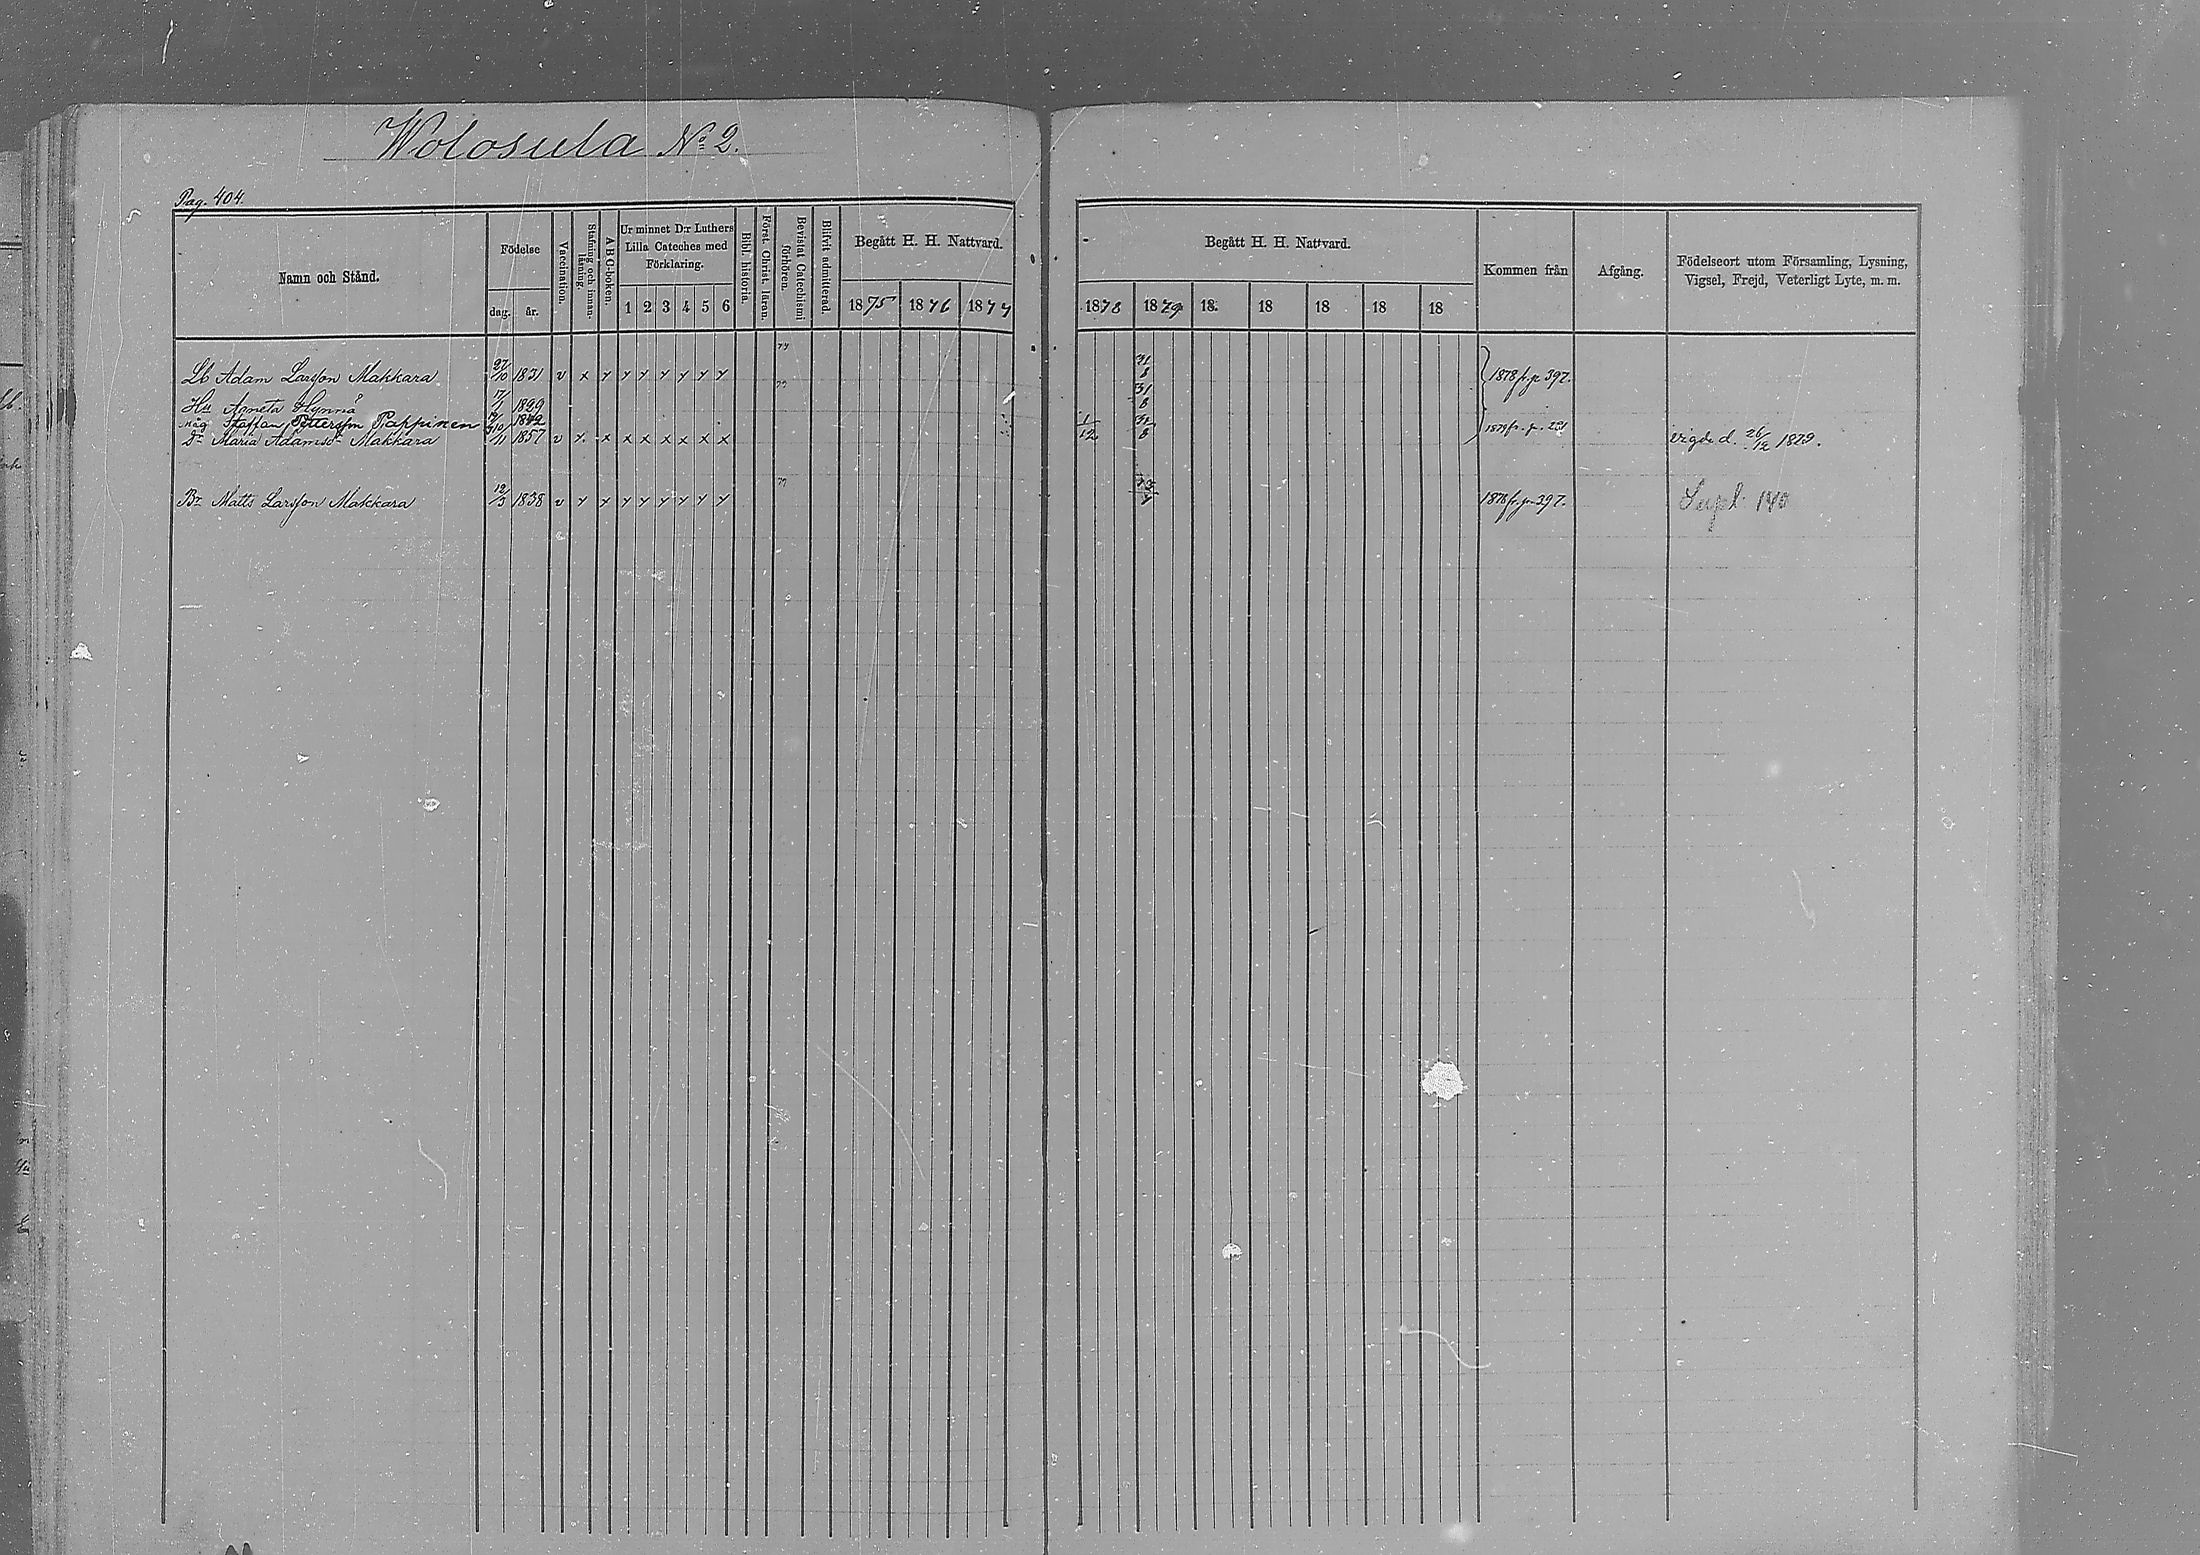 Wolosula No 2.
Pag. 404.
Namn och Stånd.
Födelse
dag. år.
Vaccination.
Stafning och innanläsning.
A B C-boken.
Ur minnet D:r Luthers
Lilla Cateches med
Förklaring.
1 2 3 4 5 6
Bibl. historia.
Först. Christ. läran.
Bevistat Catechismi
förhören.
Blifvit admitterad.
Begått H. H. Nattvard.
1875 1876 1877
Begått H. H. Nattvard.
1878 1879 18 18 18 18 18
Kommen från
Afgång.
Födelseort utom Församling, Lysning,
Vigsel, Frejd, Veterligt Lyte, m. m.
Lb Adam Larsson Makkara 27/10 1831 v x y y y y y y y 31/8 1878 fr. p. 397.
Hu Agneta Hynnä 17/1 1829 31/8
måg Staffan Pettersson Pappinen 1842 1879 fr. p.
Dr Maria Adamsdr Makkara /11 1857 v x x x x x x x x 1/12 31/8 vigde d. 26/12 1879.
Br Matts Larsson Makkara 12/3 1838 v y y y y y y y y 1878 fr. p. 397. Supl. 140